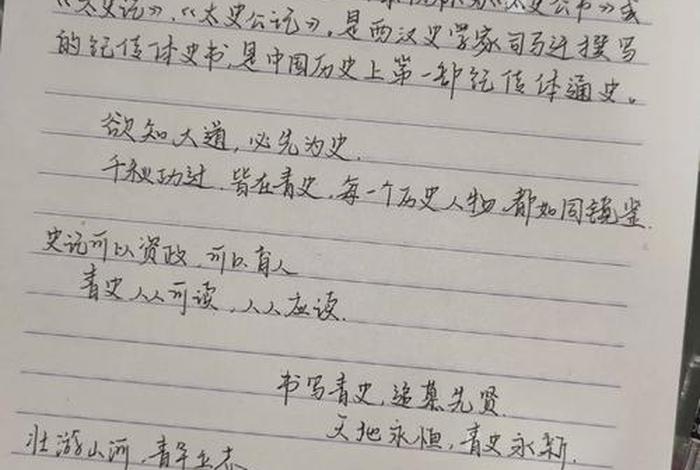 《太史记》、《太史公记》，是西汉史学家司马迁撰写
的纪传体史书，是中国历史上第一部纪传体通史。
欲知大道，必先为史.
千秋功过，皆在青史，每一个历史人物，都如同镜鉴.
史记可以资政，可以育人
青史人人可读，人人应读.
书写青史，追慕先贤.
天地永恒，青史永新.
壮游山河，青年立志